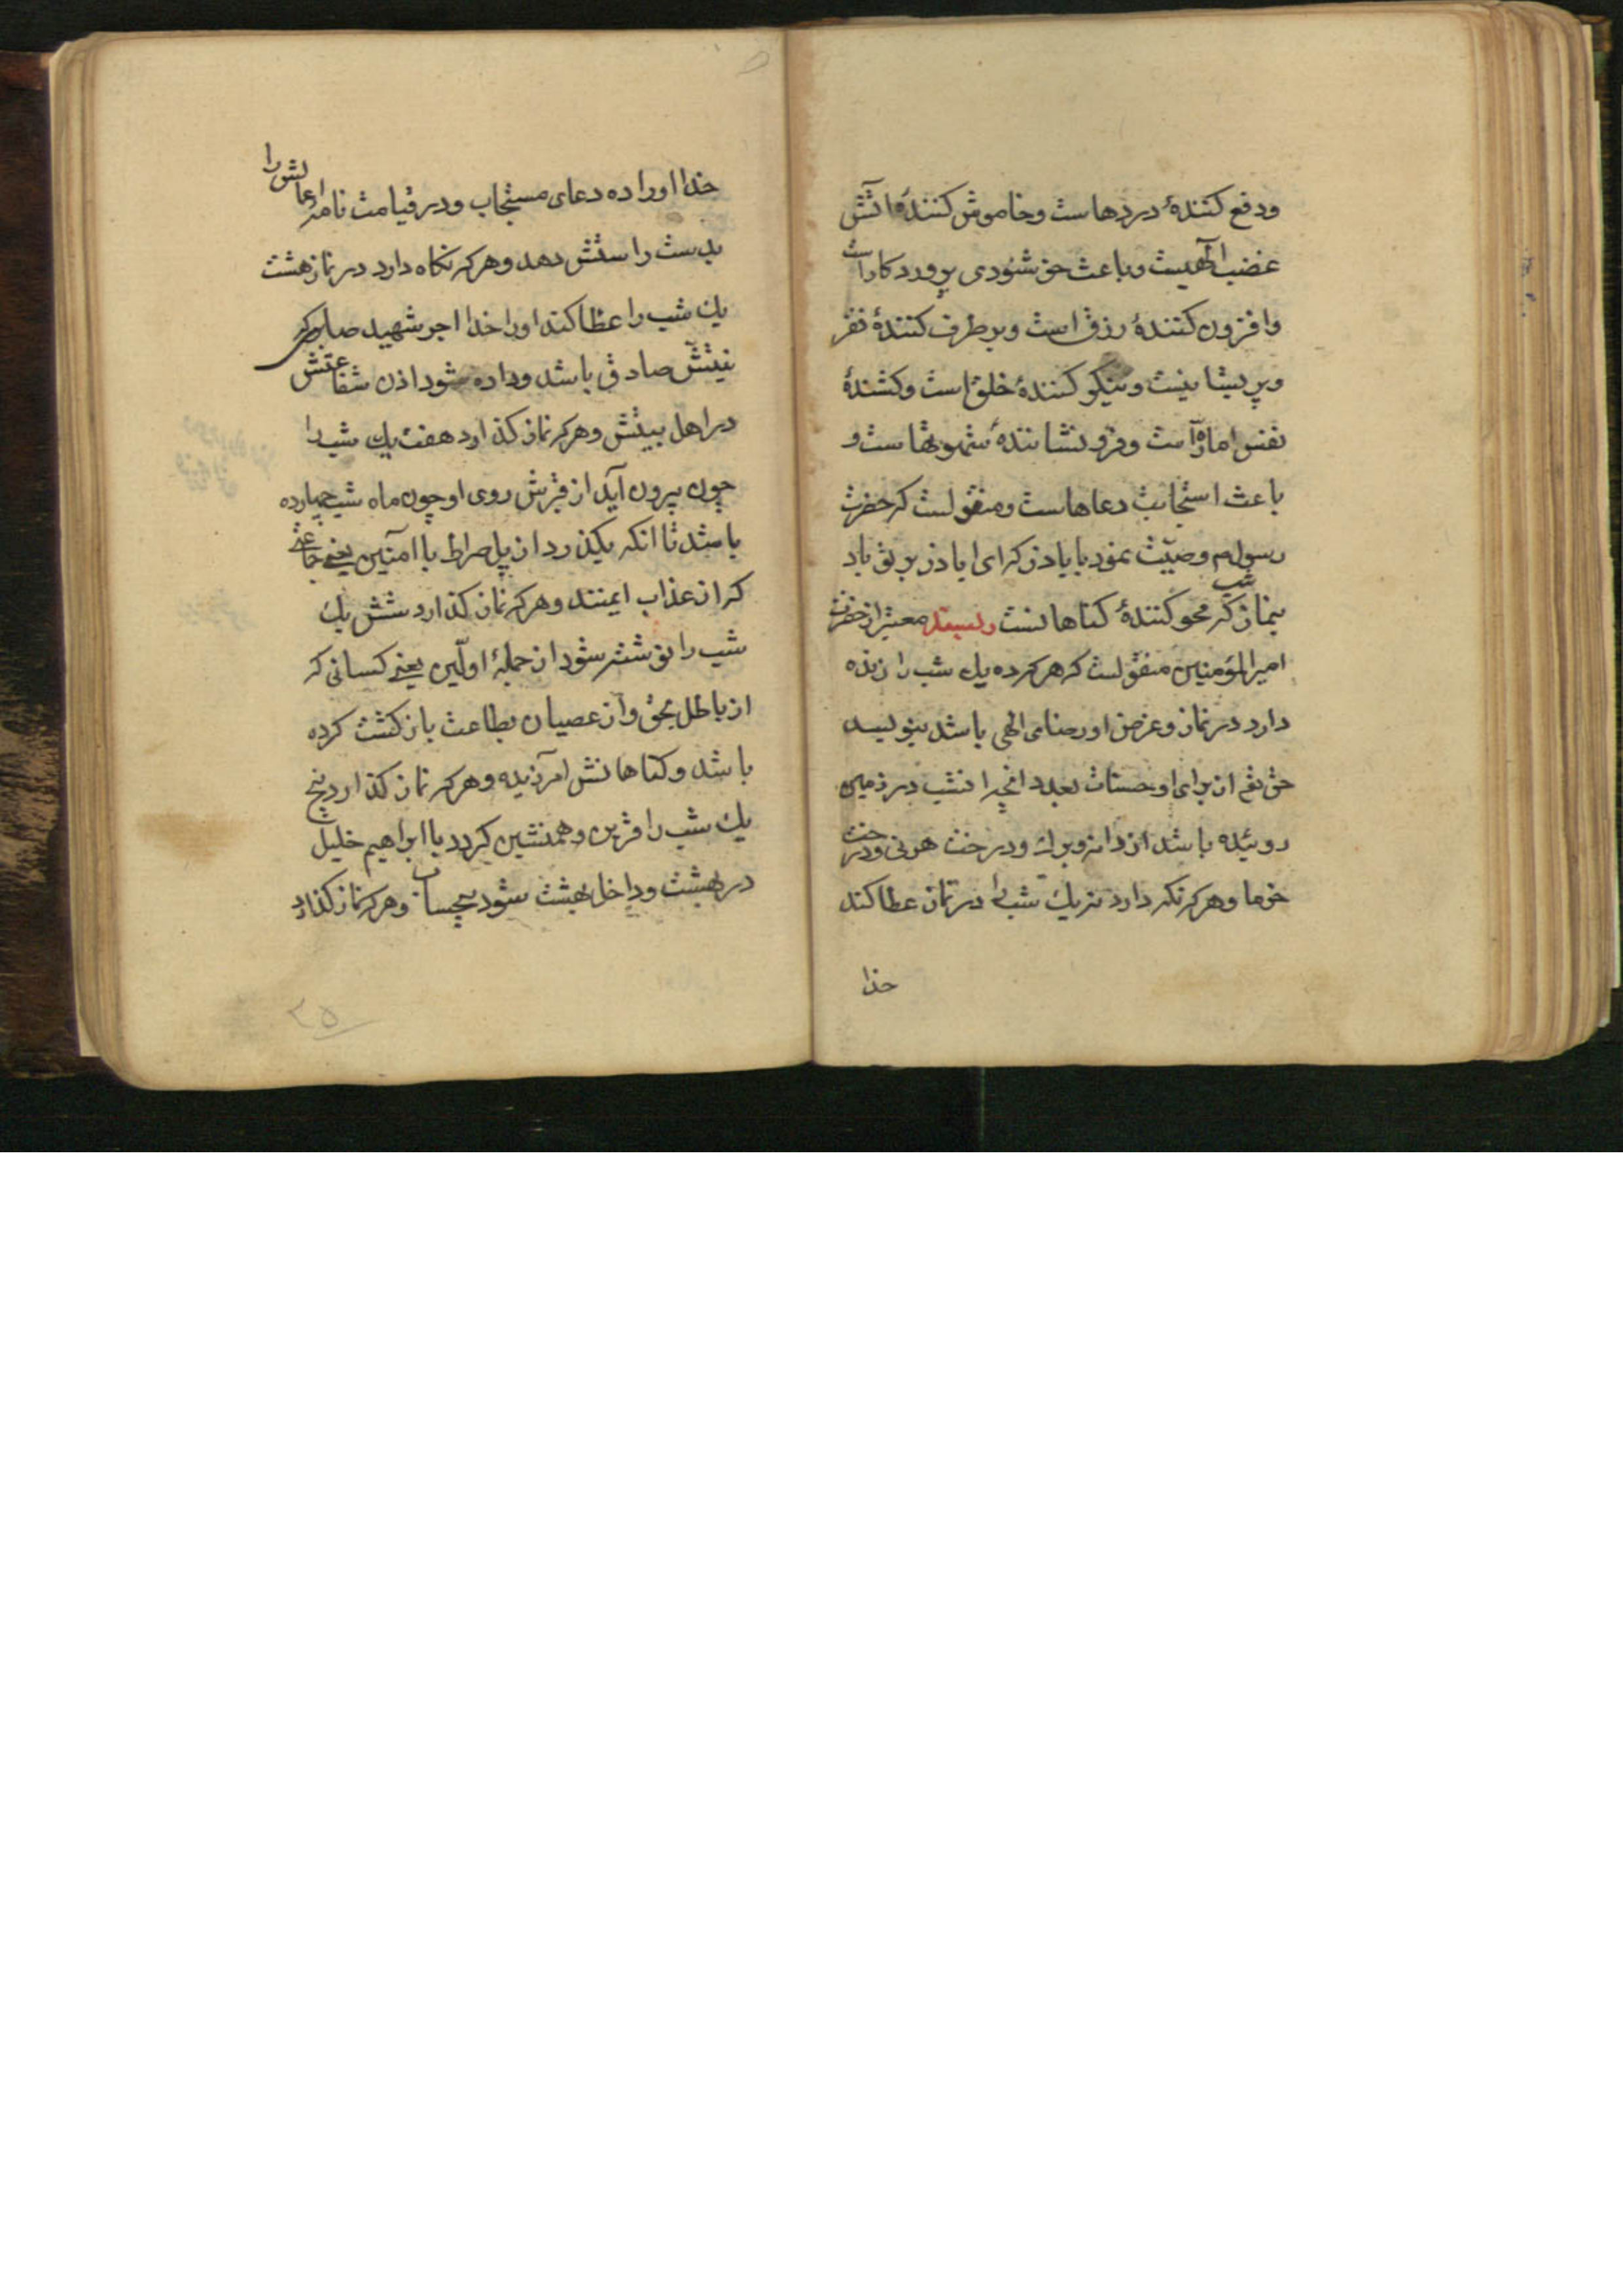 ودفع کنندهٔ دردهاست وخاموش کنندهٔ اتش
غضب الهیست وباعث خوشنودی پروردکاراست
وافزون کنندهٔ رزق است وبرطرف کنندهٔ فقر
وپریشانیست ونیکو کنندهٔ خلق است وکشندهٔ
نفس اماره است وفرونشانندهٔ شهوتهاست و
باعث استجابت دعاهاست ومنقولست که حضرت
رسول ص وصیّت نمود باباذر که ای اباذر بر تو باد
بنماز شب که محو کنندهٔ کناهانست وبسند معتبر از حضرت
امیرالمؤمنین منقولست که هرکه ده یك شب را زنده
دارد در نماز وغرض او رضای الهی باشد بنویسد
حق تعالی از برای او حسنات بعدد انچه امشب در زمین
روئیده باشد از دانه وبرك ودرخت هر نی ودرخت
خرما وهرکه نکه دارد نه یك شب را در نماز عطا کند
خدا
خدا اورا ده دعای مستجاب ودر قیامت نامه اعمالش را
بدست راستش دهد وهرکه نکاه دارد در نماز هشت
یك شب را عطا کند اورا خدا اجر شهید صابری که
نیّتش صادق باشد وداده شود اذن شفاعتش
در اهل بیتش وهرکه نماز کذارد هفت یك شب را
چون بیرون آید از قبرش روی او چون ماه شب چهارده
باشد تا انکه بکذرد از پل صراط با امنین یعنی جماعتی
که از عذاب ایمنند وهرکه نماز کذارد شش یك
شب را نوشته شود از جملهٔ اوّابین یعنی کسانی که
از باطل بحق واز عصیان بطاعت بازکشت کرده
باشد وکناهانش امرزیده وهرکه نماز کذارد پنج
یك شب را قرین وهمنشین کردد با ابراهیم خلیل
در بهشت وداخل بهشت شود بیحساب وهرکه نماز کذارد
۲۵